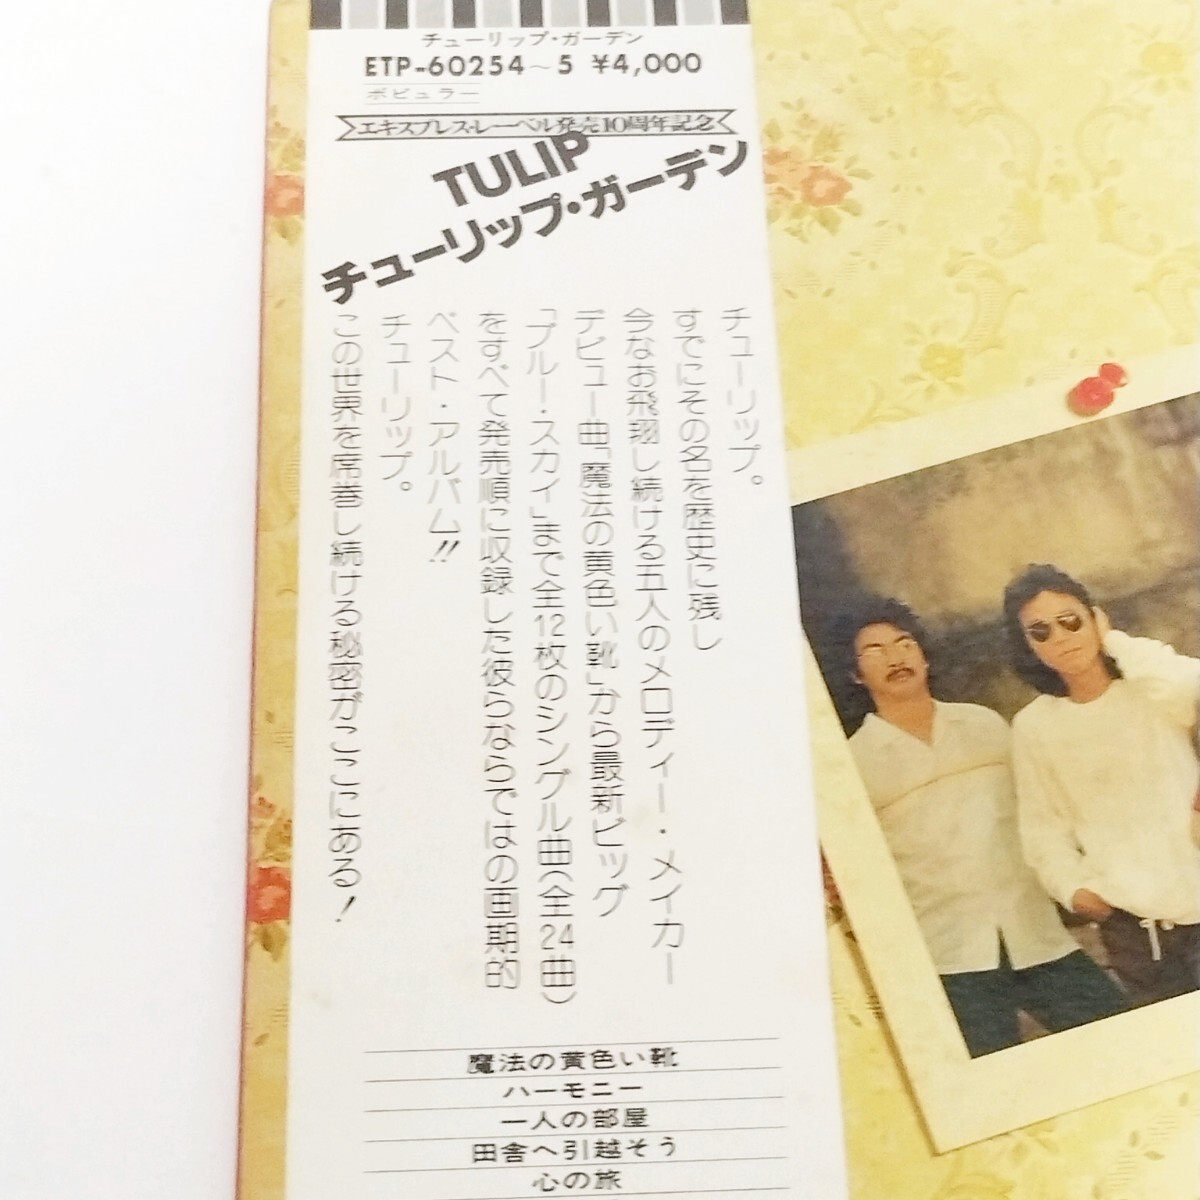 チューリップ・ガーデン
ETP-60254～5 ¥4,000
ポピュラー
エキスプレス・レーベル発売10周年記念
TULIP
チューリップ・ガーデン
チューリップ。
すでにその名を歴史に残し
今なお飛翔し続ける五人のメロディー・メイカー
デビュー曲「魔法の黄色い靴」から最新ビッグ
「ブルー・スカイ」まで全12枚のシングル曲(全24曲)
をすべて発売順に収録した彼らならではの画期的
ベスト・アルバム!!
チューリップ。
この世界を席巻し続ける秘密がここにある!
魔法の黄色い靴
ハーモニー
一人の部屋
田舎へ引越そう
心の旅